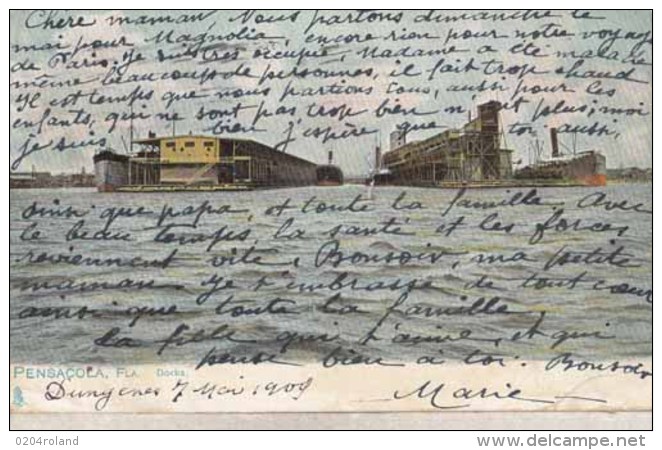 Chère maman, Nous partons dimanche le
mai pour Magnolia, encore rien pour notre voyage
de Paris. Je suis très occupé, Madame a été malade
même beaucoup de personnes, il fait trop chaud
Il est temps que nous partions tous, aussi pour les
enfants, qui ne sont pas trop bien non plus; moi
je suis bien j'espère que toi aussi,
ainsi que papa, et toute la famille. Avec
le beau temps, la santé et les forces
reviennent vite, Bonsoir, ma petite
maman. Je t'embrasse de tout cœur
ainsi que toute la famille,
ta fille qui t'aime, et qui
pense bien à toi. Bonsoir
PENSACOLA, FLA. Docks.
7 Mai 1909 Marie
0204roland